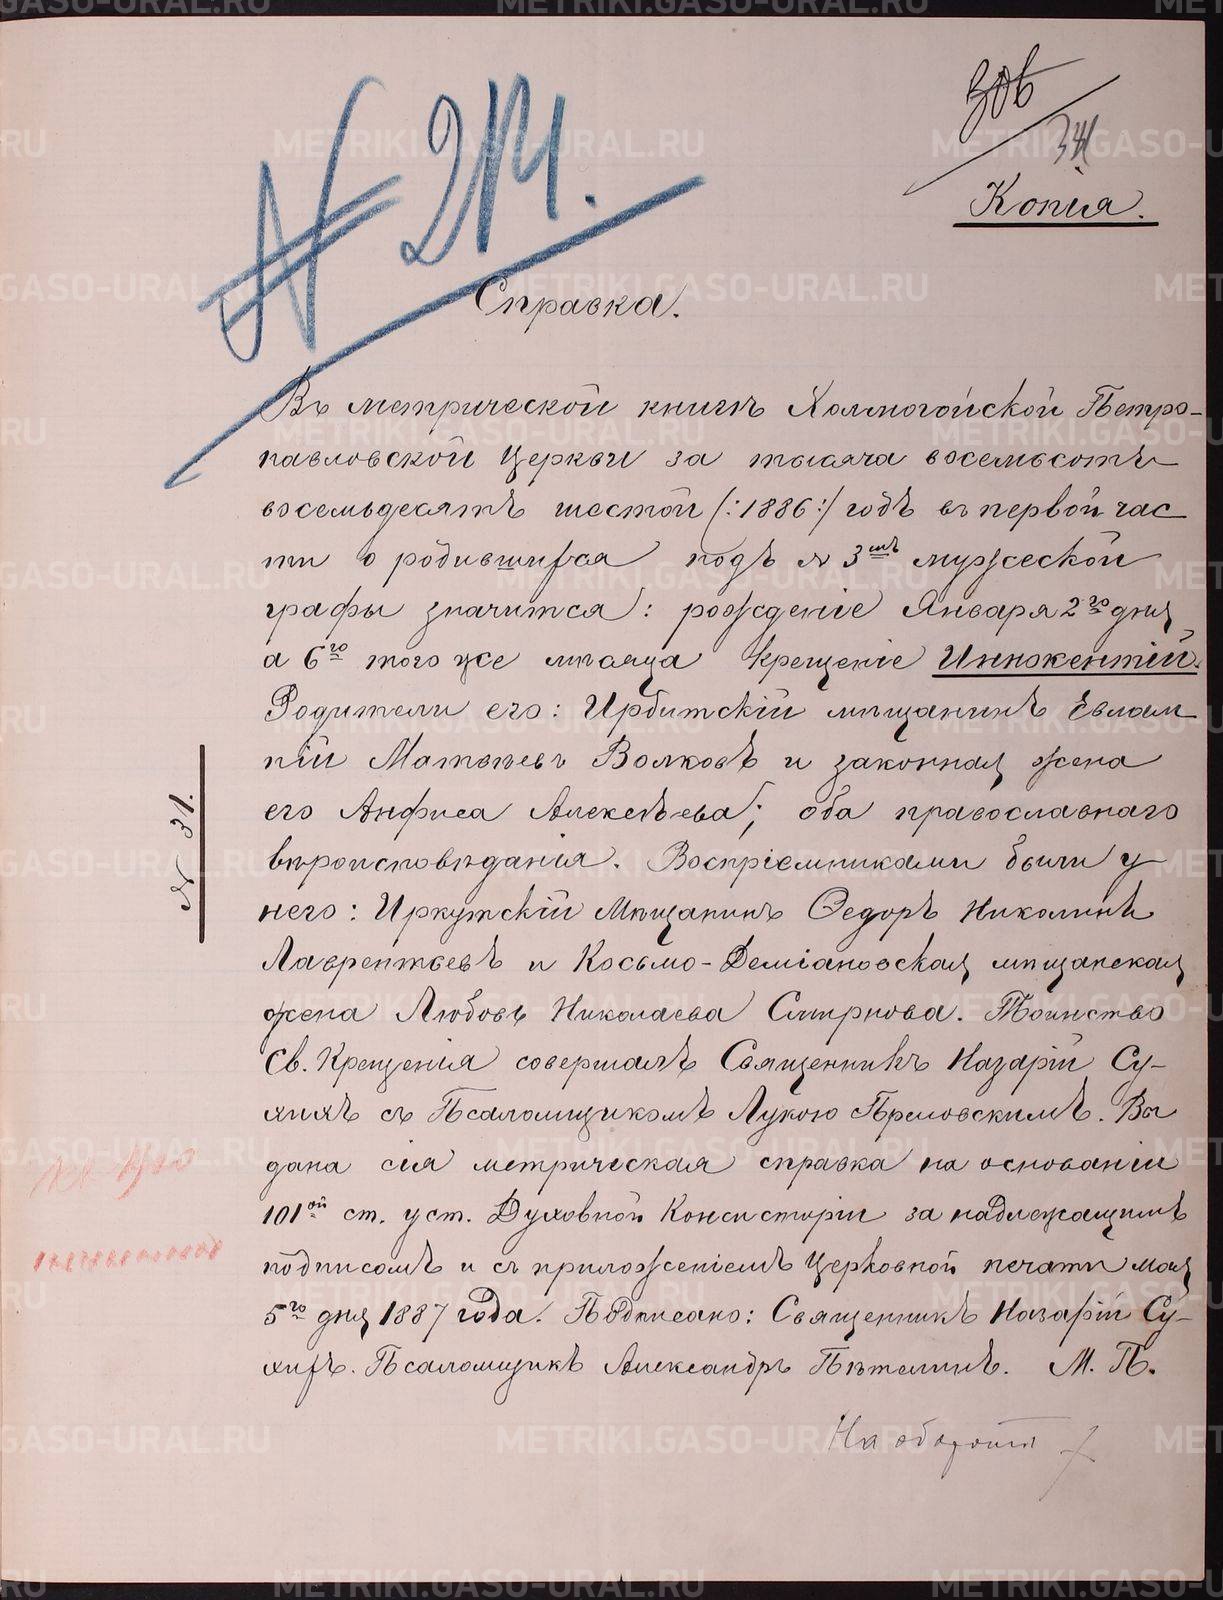 № 214.
306
341
Копія.
Справка.
Въ метрической книгѣ Холмогойской Петро-
павловской Церкви за тысяча восемьсотъ
восемьдесятъ шестой (:1886:) годъ въ первой час
ти о родившихся подъ № 3мъ мужеской
графы значится: рожденіе Января 2го дня,
а 6го того же мѣсяца крещеніе Иннокентій.
Родители его: Ирбитскій мѣщанинъ Евлам
пій Матвѣевъ Волковъ и законная жена
его Анфиса Алексѣева; оба православнаго
вѣроисповѣданія. Воспріемниками были у
него: Иркутскій Мѣщанинъ Ѳедоръ Николинъ
Лаврентьевъ и Косьмо-Деміановская мѣщанская
жена Любовь Николаева Смирнова. Таинство
Св. Крещенія совершалъ Священникъ Назарій Су-
хихъ съ Псаломщикомъ Лукою Преловскимъ. Вы
дана сія метрическая справка на основаніи
101ой ст. уст. Духовной Консисторіи за надлежащимъ
подписомъ и съ приложеніемъ Церковной печати мая
5го дня 1887 года. Подписано: Священникъ Назарій Су-
хихъ. Псаломщикъ Александръ Пѣтелинъ. М. П.
На оборотѣ
№ 31.